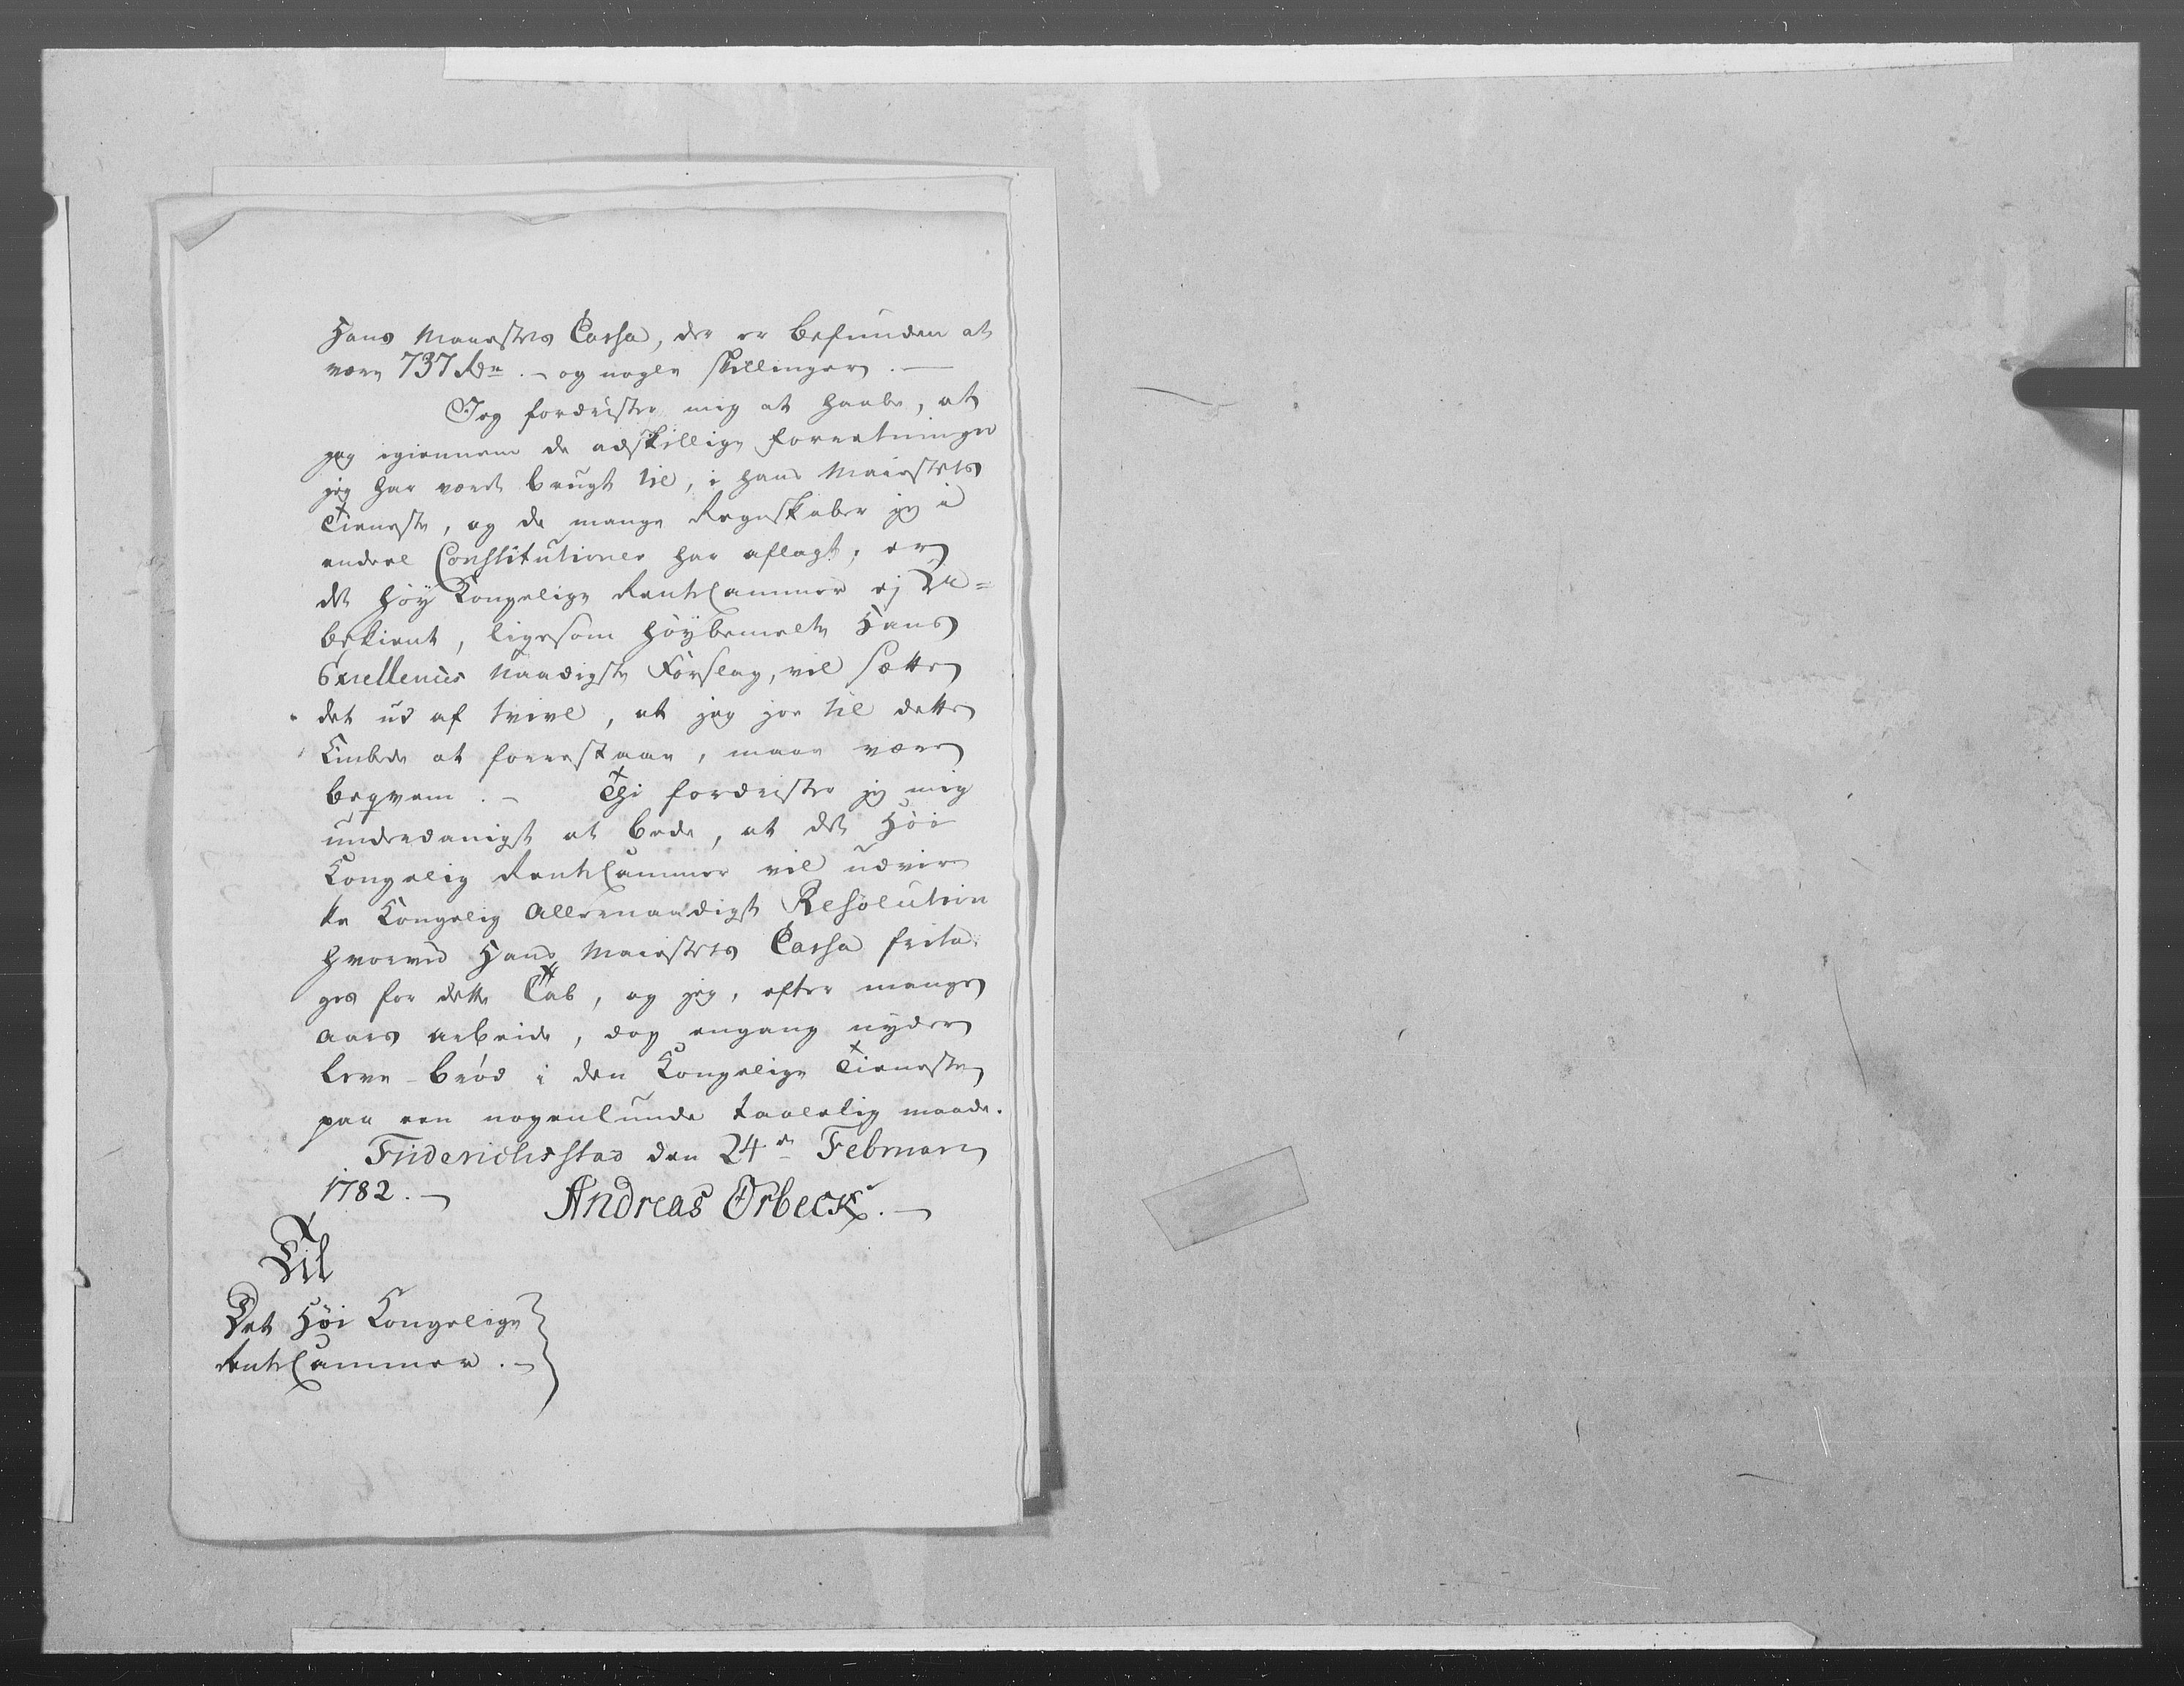 Hans Maiestets Cassa, der er befunden at
være 737 Rdr. - og nogle skillinger. -
Jeg fordrister mig at haabe, at
jeg igiennem de adskillige forretninger
jeg har været brugt til, i hans Maiestets
Tieneste, og de mange Regnskaber jeg i
andre Constitutioner har aflagt, er
det høy Kongelige RenteCammer ej Ube-
bekient, ligesom høybemelte Hans
Exellences Naadigste Forslag, vil sætte
det ud af tvivl, at jeg jo til dette
Embede at forrestaae, maae være
beqvem. - Thi fordrister jeg mig
underdanigst at bede, at det Høi
Kongelig RenteCammer vil udvir
ke Kongelig Allernaadigst Resolution
hvorved Hans Maiestets Cassa frita-
ges for dette Tab, og jeg, efter manges
Aars arbeide, dog engang nyder
leve-brød i den Kongelige Tieneste
paa een nogenlunde taalelig maade.
Friderichsstad den 24de Februarii
1782. -
Andreas Ørbeck. -
Til
Det Høi Kongelige
RenteCammer. -